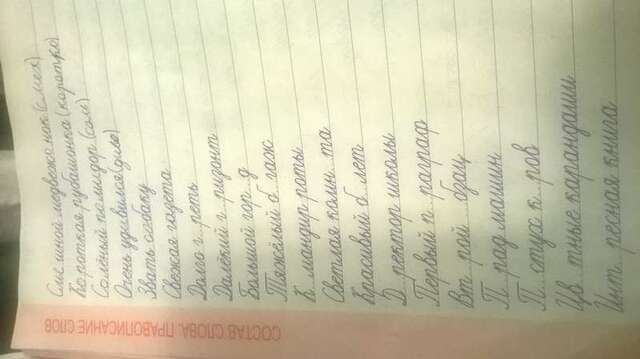 СОСТАВ СЛОВА. ПРАВОПИСАНИЕ СЛОВ
Сме шной медвежо нок (смех)
Короткая рубашонка (коротко)
Солёный помидор (соль)
Очень удивился (диво)
Звать собаку
Свежая газета
Долго г реть
Далёкий г ризонт
Большой гор д
Тяжёлый б гаж
К мандир роты
Светлая комн та
Красивый б лет
Д ректор школы
Первый п раграф
Вт рой бзац
П рад машин
П стух к ров
Цв тные карандаши
Инт ресная книга